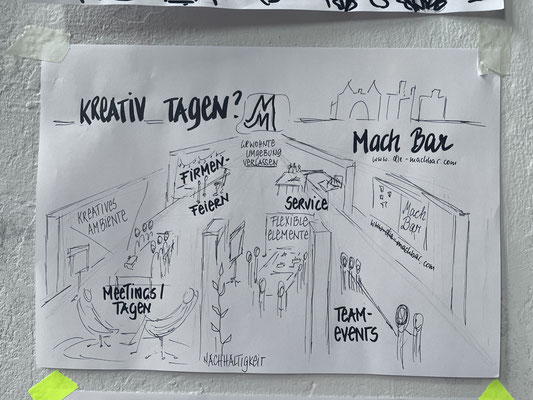 KREATIV TAGEN?
M
GEWOHNTE
UMGEBUNG
VERLASSEN
Mach Bar
www.die-machbar.com
FIRMEN-
FEIERN
SERVICE
KREATIVES
AMBIENTE
Mach
Bar
www.die-machbar.com
FLEXIBLE
ELEMENTE
MEETINGS/
TAGEN
TEAM-
EVENTS
NACHHALTIGKEIT